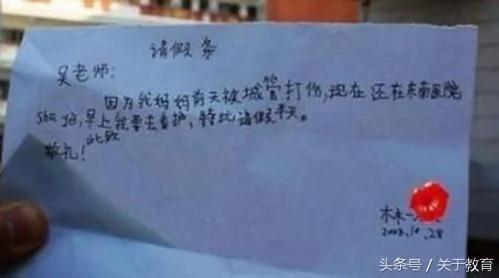 请假条
吴老师:
因为我妈妈前天被城管打伤,现在还在东南医院
,早上我要去看护,特此请假半天。
此致
敬礼!
林一
2008.10.28
头条号/关于教育